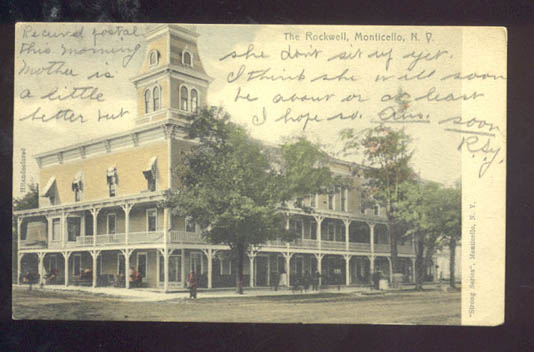 The Rockwell, Monticello, N. Y.
Received postal
this morning
Mother is
a little
better but
she don't sit up yet.
I think she will soon
be about or at least
I hope so. Ans. soon
R.S.y.
Handcolored
"Strong Series", Monticello, N. Y.